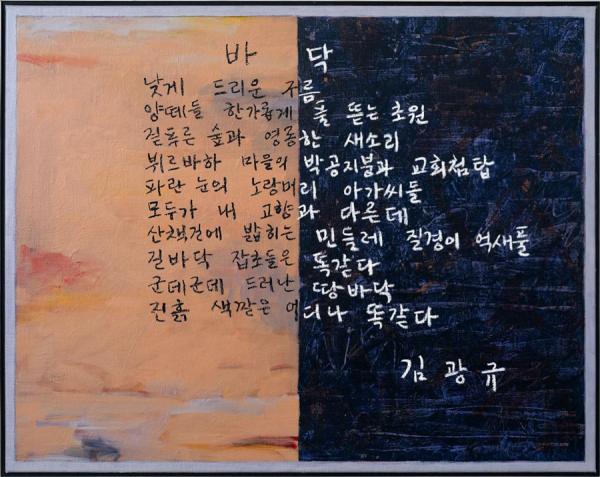 바 닥
낮게 드리운 구름
양떼들 한가롭게 풀 뜯는 초원
짙푸른 숲과 영롱한 새소리
뷔르바하 마을의 박공지붕과 교회첨탑
파란 눈의 노랑머리 아가씨들
모두가 내 고향과 다른데
산책길에 밟히는 민들레 질경이 억새풀
길바닥 잡초들은 똑같다
군데군데 드러난 땅바닥
진흙 색깔은 어디나 똑같다
김 광 규